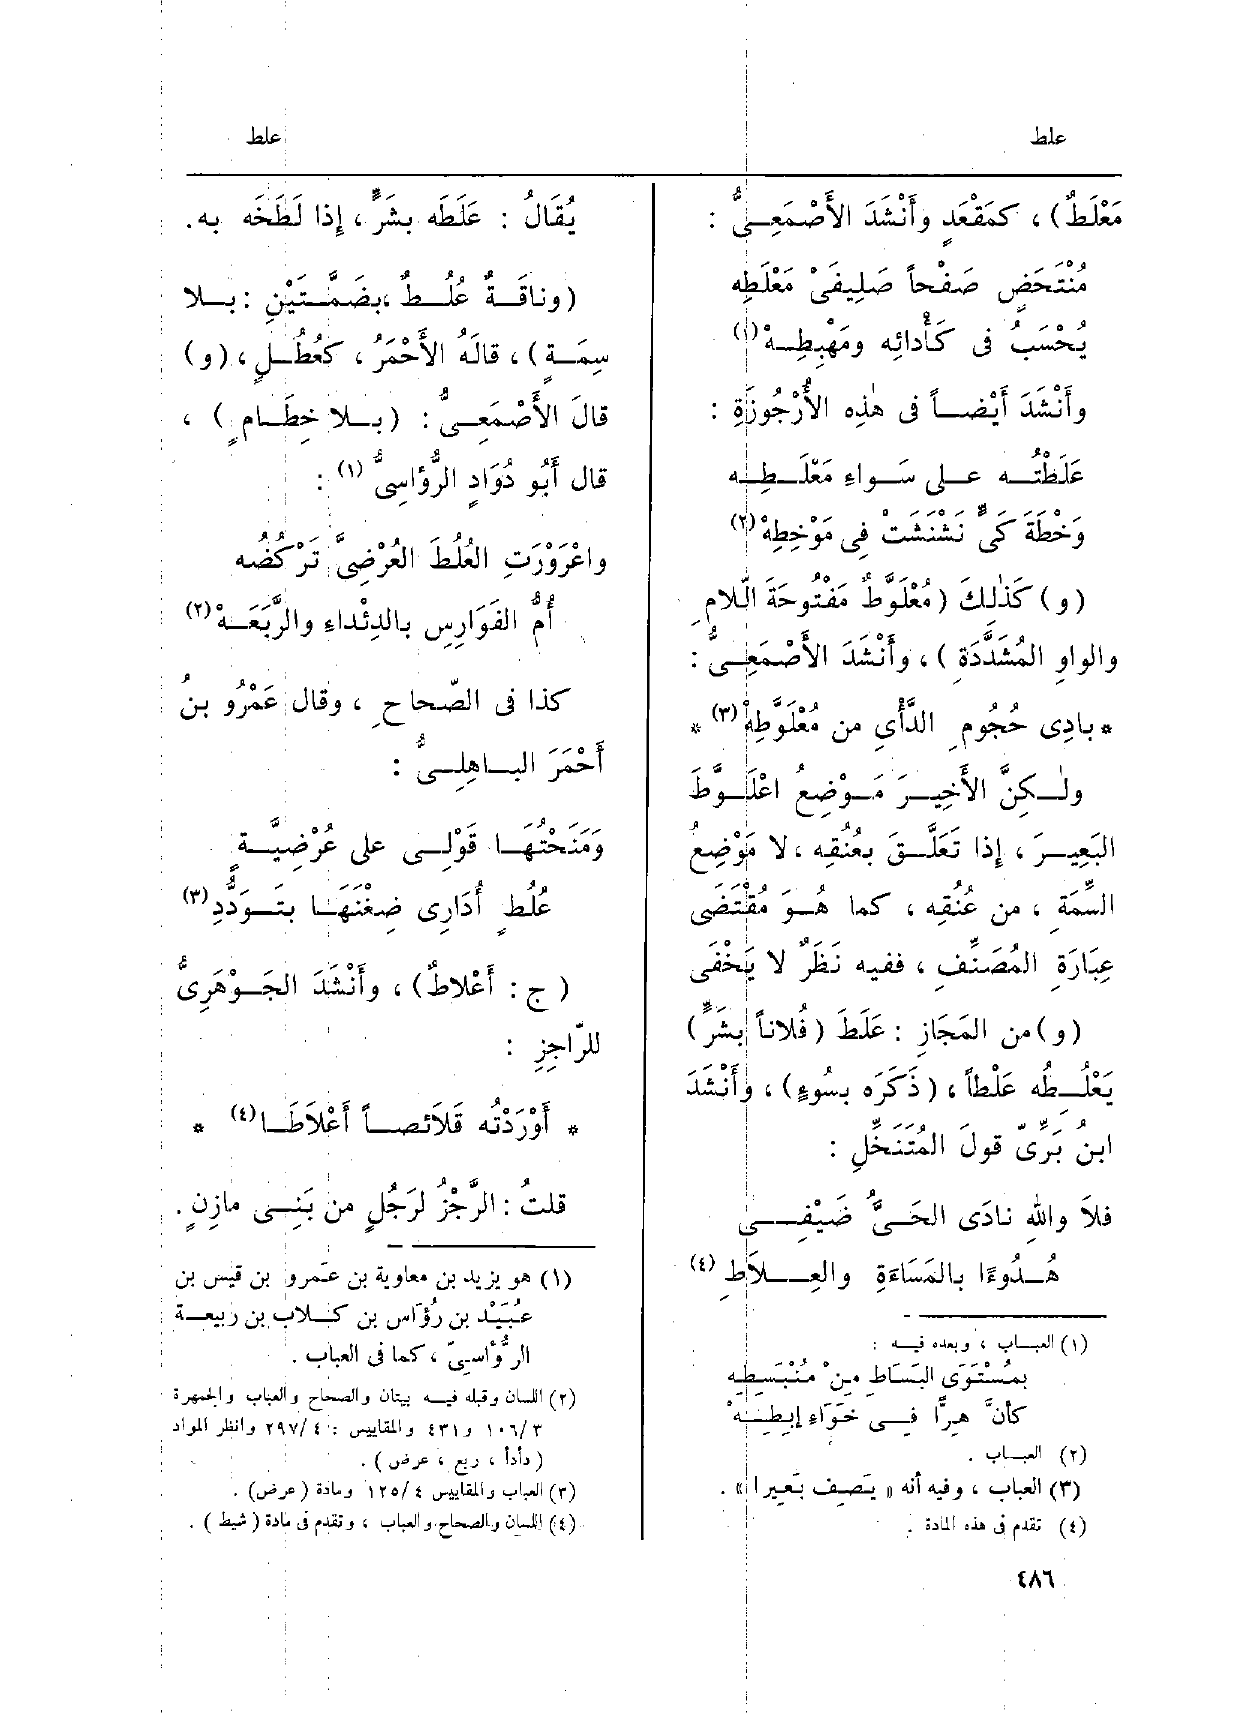 علط
علط
مَعْلَطٌ) ، كمَقْعَدٍ وأَنْشَدَ الأَصْمَعِــىُّ :
مُنْتَحَضٍ صَفْحاً صَلِيفَىْ مَعْلَطِه
يُحْسَبُ فى كَأْدائِه ومَهْبِطِــهْ (١)
وأَنْشَدَ أَيْضــاً فى هٰذِه الأُرْجُوزَةِ :
عَلَطْتُــه عــلى سَــواءِ مَعْلَــطِــه
وَخْطَةَ كَىٍّ نَشْنَشَتْ فِى مَوْخِطِهْ (٢)
(و) كَذٰلِكَ (مُعْلَوَّطٌ مَفْتُوحَةَ الّلامِ
والواوِ المُشَدَّدَةِ ) ، وأَنْشَدَ الأَصْمَعِــىُّ :
* بادِى حُجُومِ الدَّأْىِ من مُعْلَوَّطِهْ (٣) *
ولٰــكِنَّ الأَخِيــرَ مَــوْضِعُ اعْلَــوَّطَ
البَعِيــرَ ، إذا تَعَلَّــقَ بعُنُقِه ، لا مَوْضِعُ
السِّمَةِ ، من عُنُقِه ، كما هُــوَ مُقْتَضَى
عِبَارَةِ المُصَنِّفِ ، ففيه نَظَرٌ لا يَخْفَى
(و) من المَجَازِ : عَلَطَ (فُلاناً بشَرٍّ)
يَعْلُــطُه عَلْطاً ، (ذَكَرَه بسُوءٍ) ، وأَنْشَدَ
ابنُ بَرِّىّ قولَ المُتَنَخِّلِ :
فلاَ واللهِ نادَى الحَــىُّ ضَيْفِــى
هُــدُوءًا بالمَسَاءَةِ والعِــلاَطِ (٤)
(١) العبــاب ، وبعده فيــه :
بمُسْتَوَى البَسَاطِ مِنْ مُنْبَسِطِه
كأنَّ هِرًّا فــى خَوَاءِ إبطِــهْ
(٢) العبــاب .
(٣) العباب ، وفيه أنه « يَصِف بَعِيرا » .
(٤) تقدم فى هذه المادة .
يُقَالُ : عَلَطَه بشَرٍّ ، إذا لَطَخَه به.
(وناقَــةٌ عُلُــطٌ ،بضَمَّــتَيْنِ :بــلا
سِمَــة) ، قالَهُ الأَحْمَرُ ، كعُطُــلٍ ، (و)
قالَ الأَصْمَعِــىُّ : (بــلا خِطَــامٍ ) ،
قال أَبُو دُوَادٍ الرُّؤاسِىُّ (١) :
واعْرَوْرَتِ العُلُطَ العُرْضِىَّ تَرْكُضُه
أُمُّ الفَوَارِسِ بالدِئْداءِ والرَّبَعَــهْ (٢)
كذا فى الصّحاحِ ، وقال عَمْرُو بنُ
أَحْمَرَ البــاهِلِــىُّ :
وَمَنَحْتُهَــا قَوْلِــى على عُرْضِيَّــةٍ
عُلُطٍ أُدَارِى ضِغْنَهَــا بتَــوَدُّدِ (٣)
( ج : أَعْلاطٌ) ، وأَنْشَدَ الجَــوْهَرِىُّ
للرّاجِزِ :
* أَوْرَدْتُه قَلاَئصــاً أَعْلاَطَــا (٤) *
قلتُ : الرَّجْزُ لرَجُلٍ من بَنِــى مازِنٍ .
(١) هو يزيد بن معاوية بن عَمرو بن قيس بن
عبُيَيْد بن رُؤاس بن كــلاب بن ربيعــة
الرُّؤاسِىّ ، كما فى العباب .
(٢) اللسان وقبله فيــه بيتان والصحاح والعباب والجمهرة
١٠٦/٣ و٤٣١ والمقاييس : ٢٩٧/٤ وانظر المواد
(دأدأ ، ربع ، عرض ) .
(٣) العباب والمقاييس ١٢٥/٤ ومادة (عرض) .
(٤) اللسان والصحاح والعباب ، وتقدم فى مادة ( شيط ) .
٤٨٦